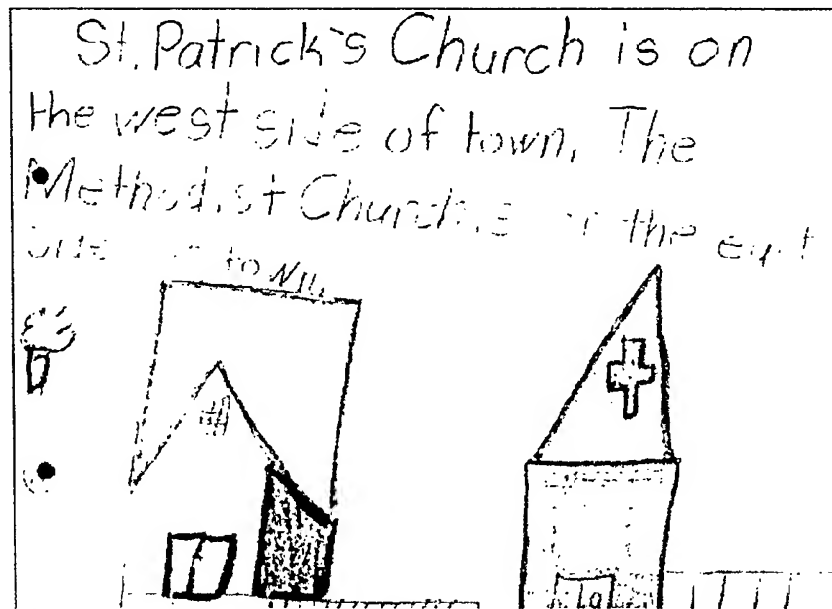 St. Patrick's Church is on
the west side of town. The
Methodist Church is on the east
side of town.